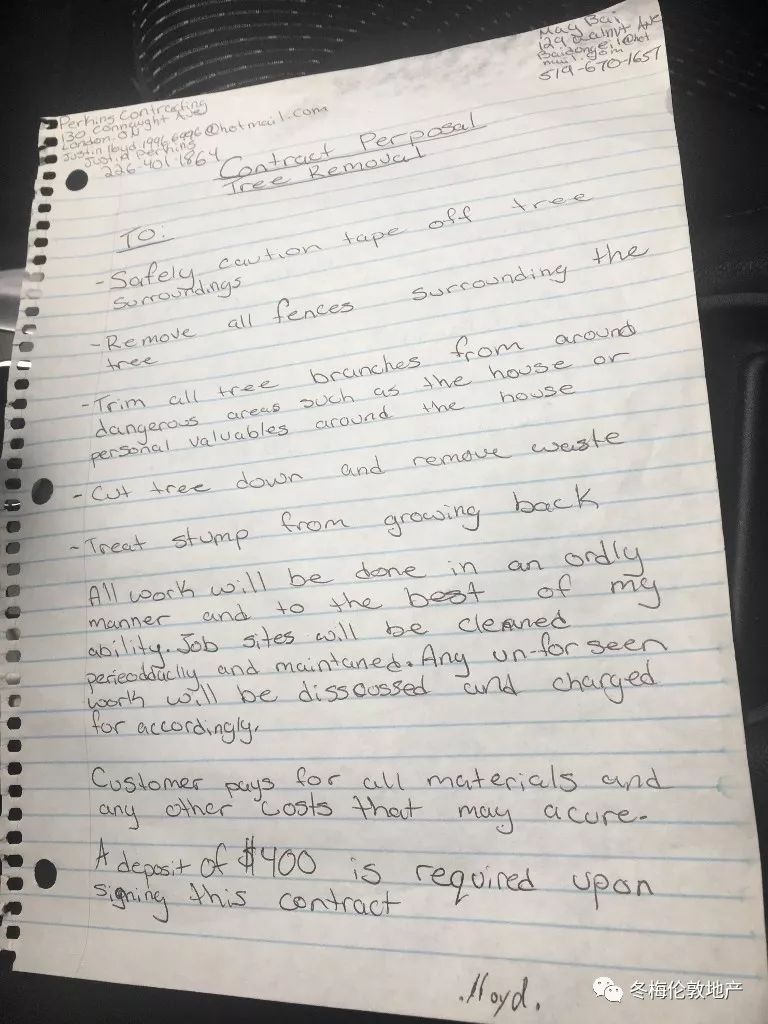 May Bai
129 Walnut Ave
519-670-1657
Perkins Contracting
130 Connaught Ave
London ON
Justin Perkins
226-401-1864
Contract Perposal
Tree Removal
TO:
-Safely caution tape off tree
surroundings
-Remove all fences surrounding the
tree
-Trim all tree branches from around
dangerous areas such as the house or
personal valuables around the house
-Cut tree down and remove waste
-Treat stump from growing back
All work will be done in an ordly
manner and to the best of my
ability. Job sites will be cleaned
and maintaned. Any un-for seen
work will be disscussed and charged
for accordingly.
Customer pays for all materials and
any other costs that may acure.
A deposit of $400 is required upon
signing this contract
.lloyd.
冬梅伦敦地产